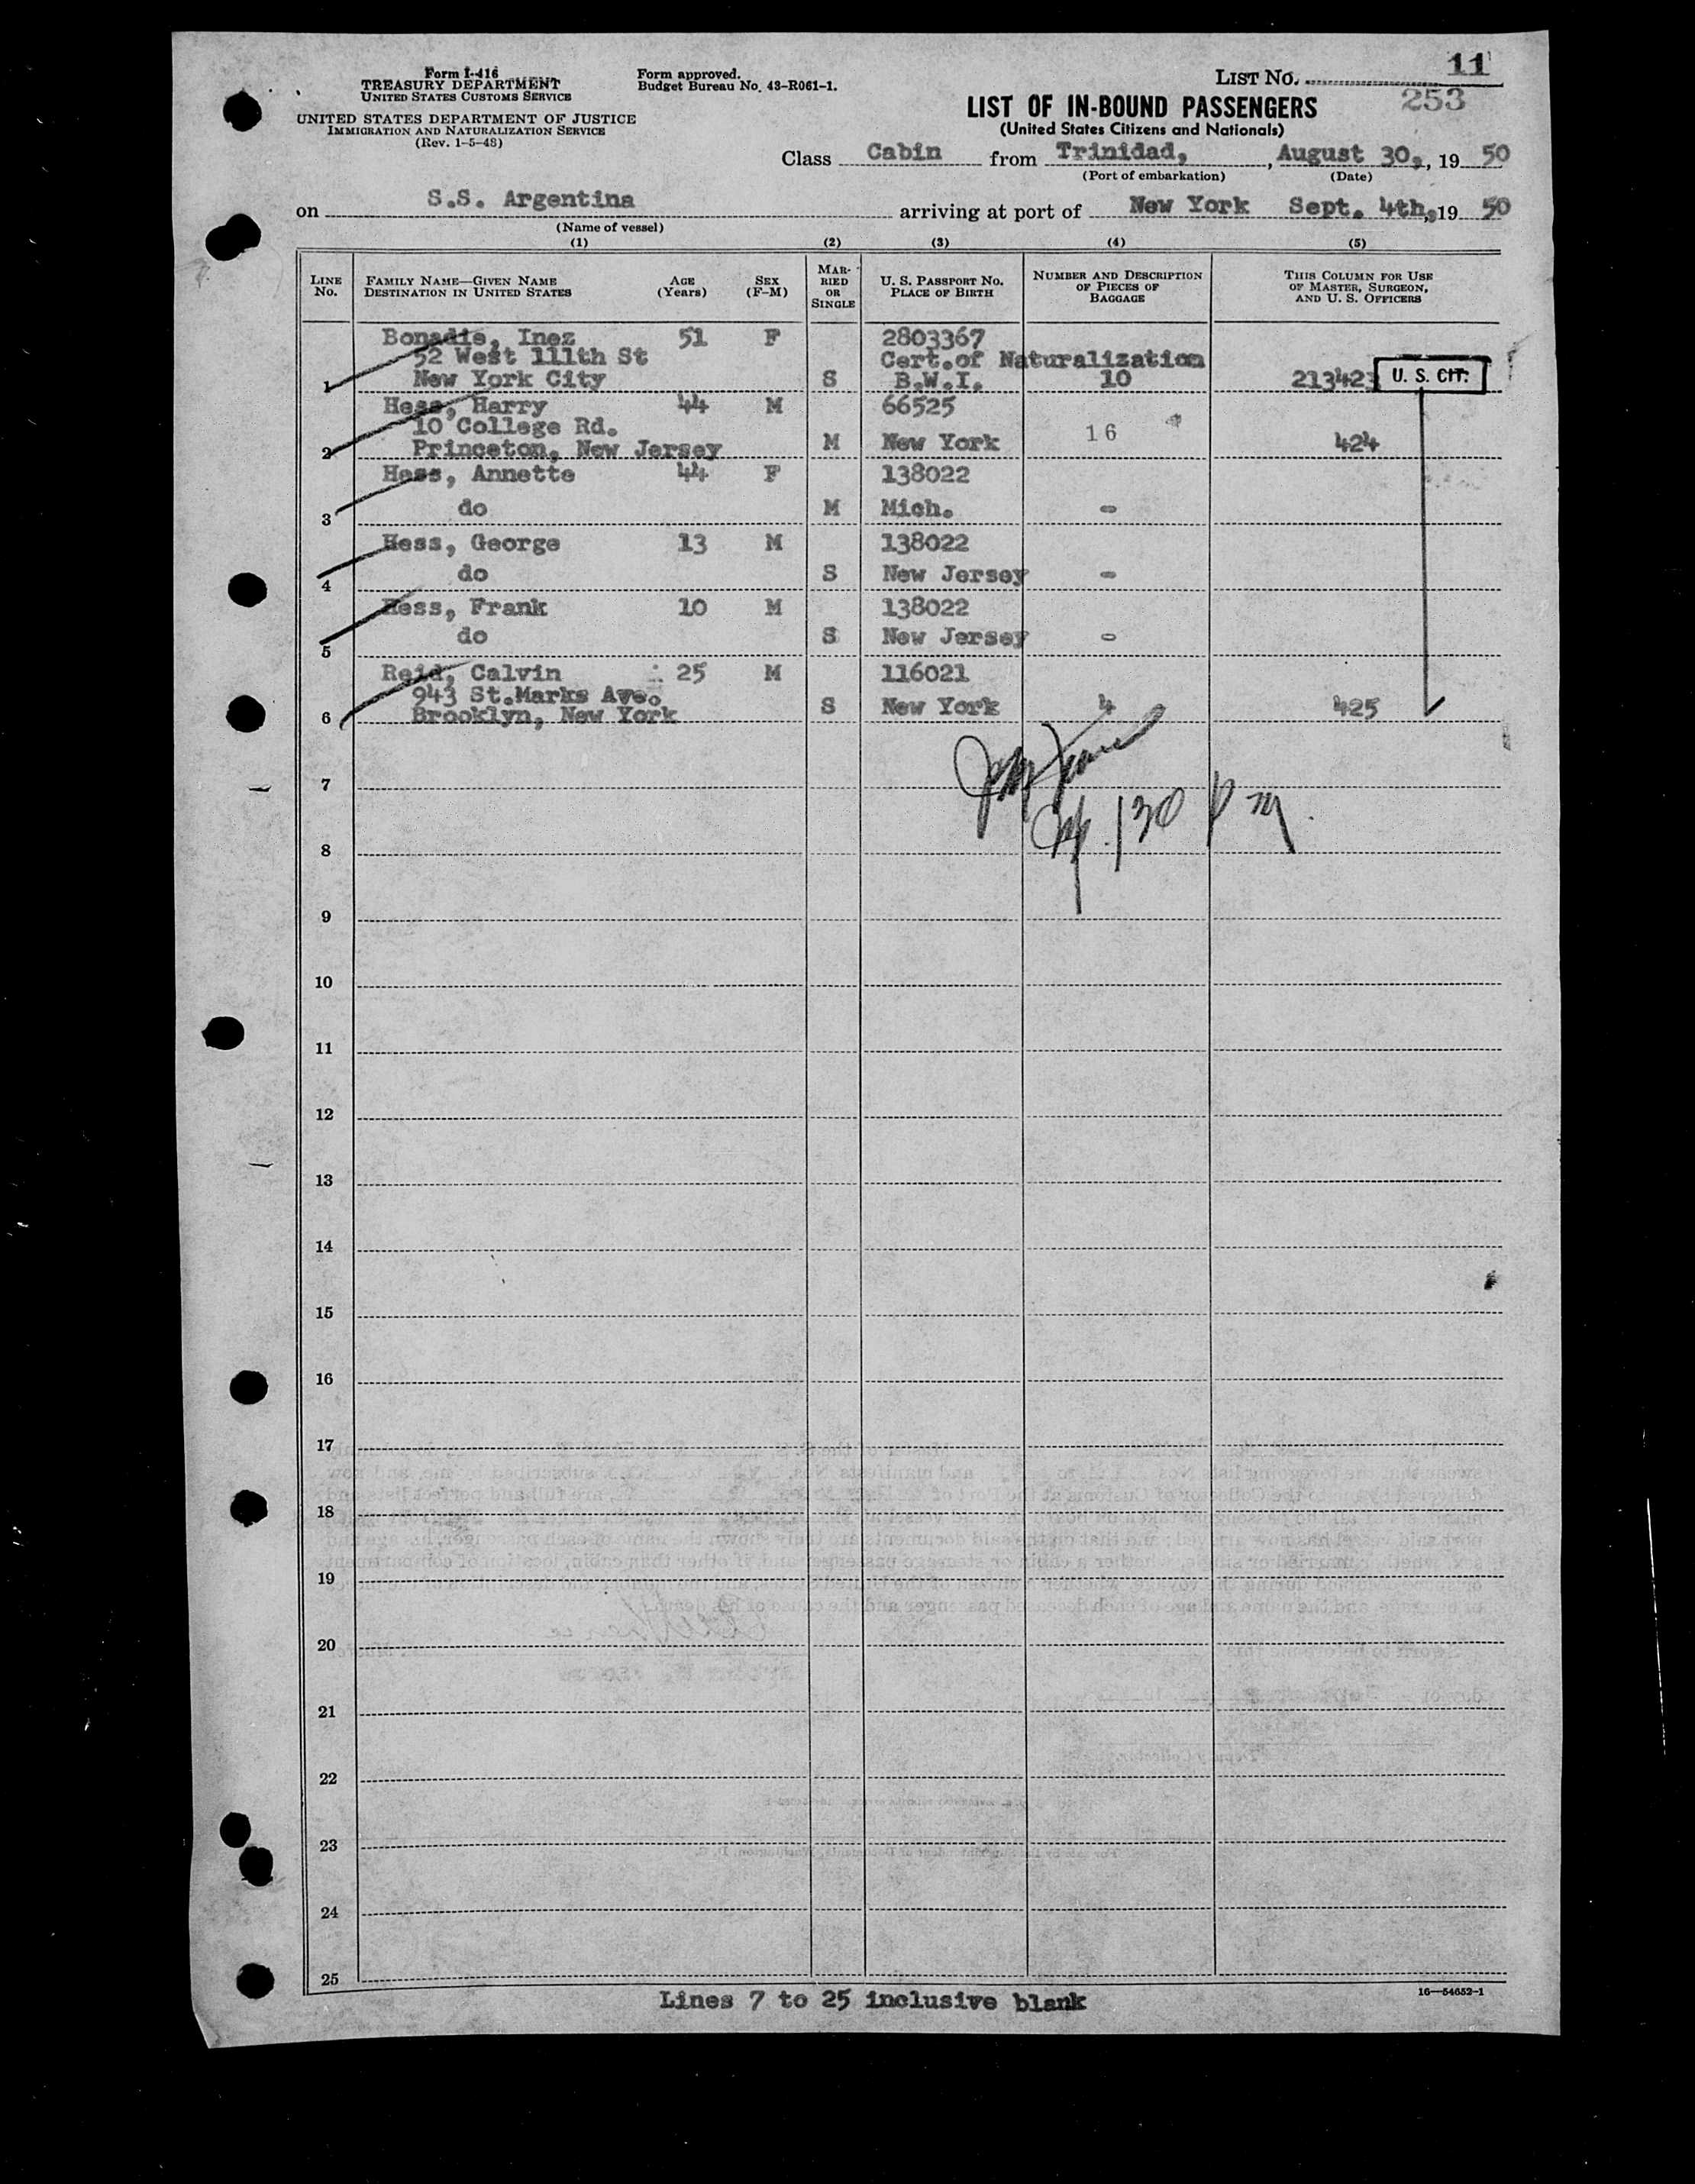 Form I-416
TREASURY DEPARTMENT
UNITED STATES CUSTOMS SERVICE
UNITED STATES DEPARTMENT OF JUSTICE
IMMIGRATION AND NATURALIZATION SERVICE
(Rev. 1-5-48)
Form approved.
Budget Bureau No. 43-R061-1.
LIST NO. 11
253
LIST OF IN-BOUND PASSENGERS
(United States Citizens and Nationals)
Class Cabin from Trinidad, , August 30, , 19 50
(Port of embarkation) (Date)
on S.S. Argentina arriving at port of New York Sept. 4th, 19 50
(Name of vessel)
(1) (2) (3) (4) (5)
LINE No. FAMILY NAME—GIVEN NAME DESTINATION IN UNITED STATES AGE (Years) SEX (F-M) MARRIED OR SINGLE U. S. PASSPORT NO. PLACE OF BIRTH NUMBER AND DESCRIPTION OF PIECES OF BAGGAGE THIS COLUMN FOR USE OF MASTER, SURGEON, AND U. S. OFFICERS
Bonadie, Inez 51 F 2803367
52 West 111th St Cert.of Naturalization
1 New York City S B.W.I. 10 213423 U. S. CIT.
Hess, Harry 44 M 66525
10 College Rd.
2 Princeton, New Jersey M New York 16 424
Hess, Annette 44 F 138022
3 do M Mich. -
Hess, George 13 M 138022
4 do S New Jersey -
Hess, Frank 10 M 138022
5 do S New Jersey -
Reid, Calvin 25 M 116021
943 St.Marks Ave.
6 Brooklyn, New York S New York 4 425
7
130 P M.
8
9
10
11
12
13
14
15
16
17
18
19
20
21
22
23
24
25
Lines 7 to 25 inclusive blank
16—54652-1